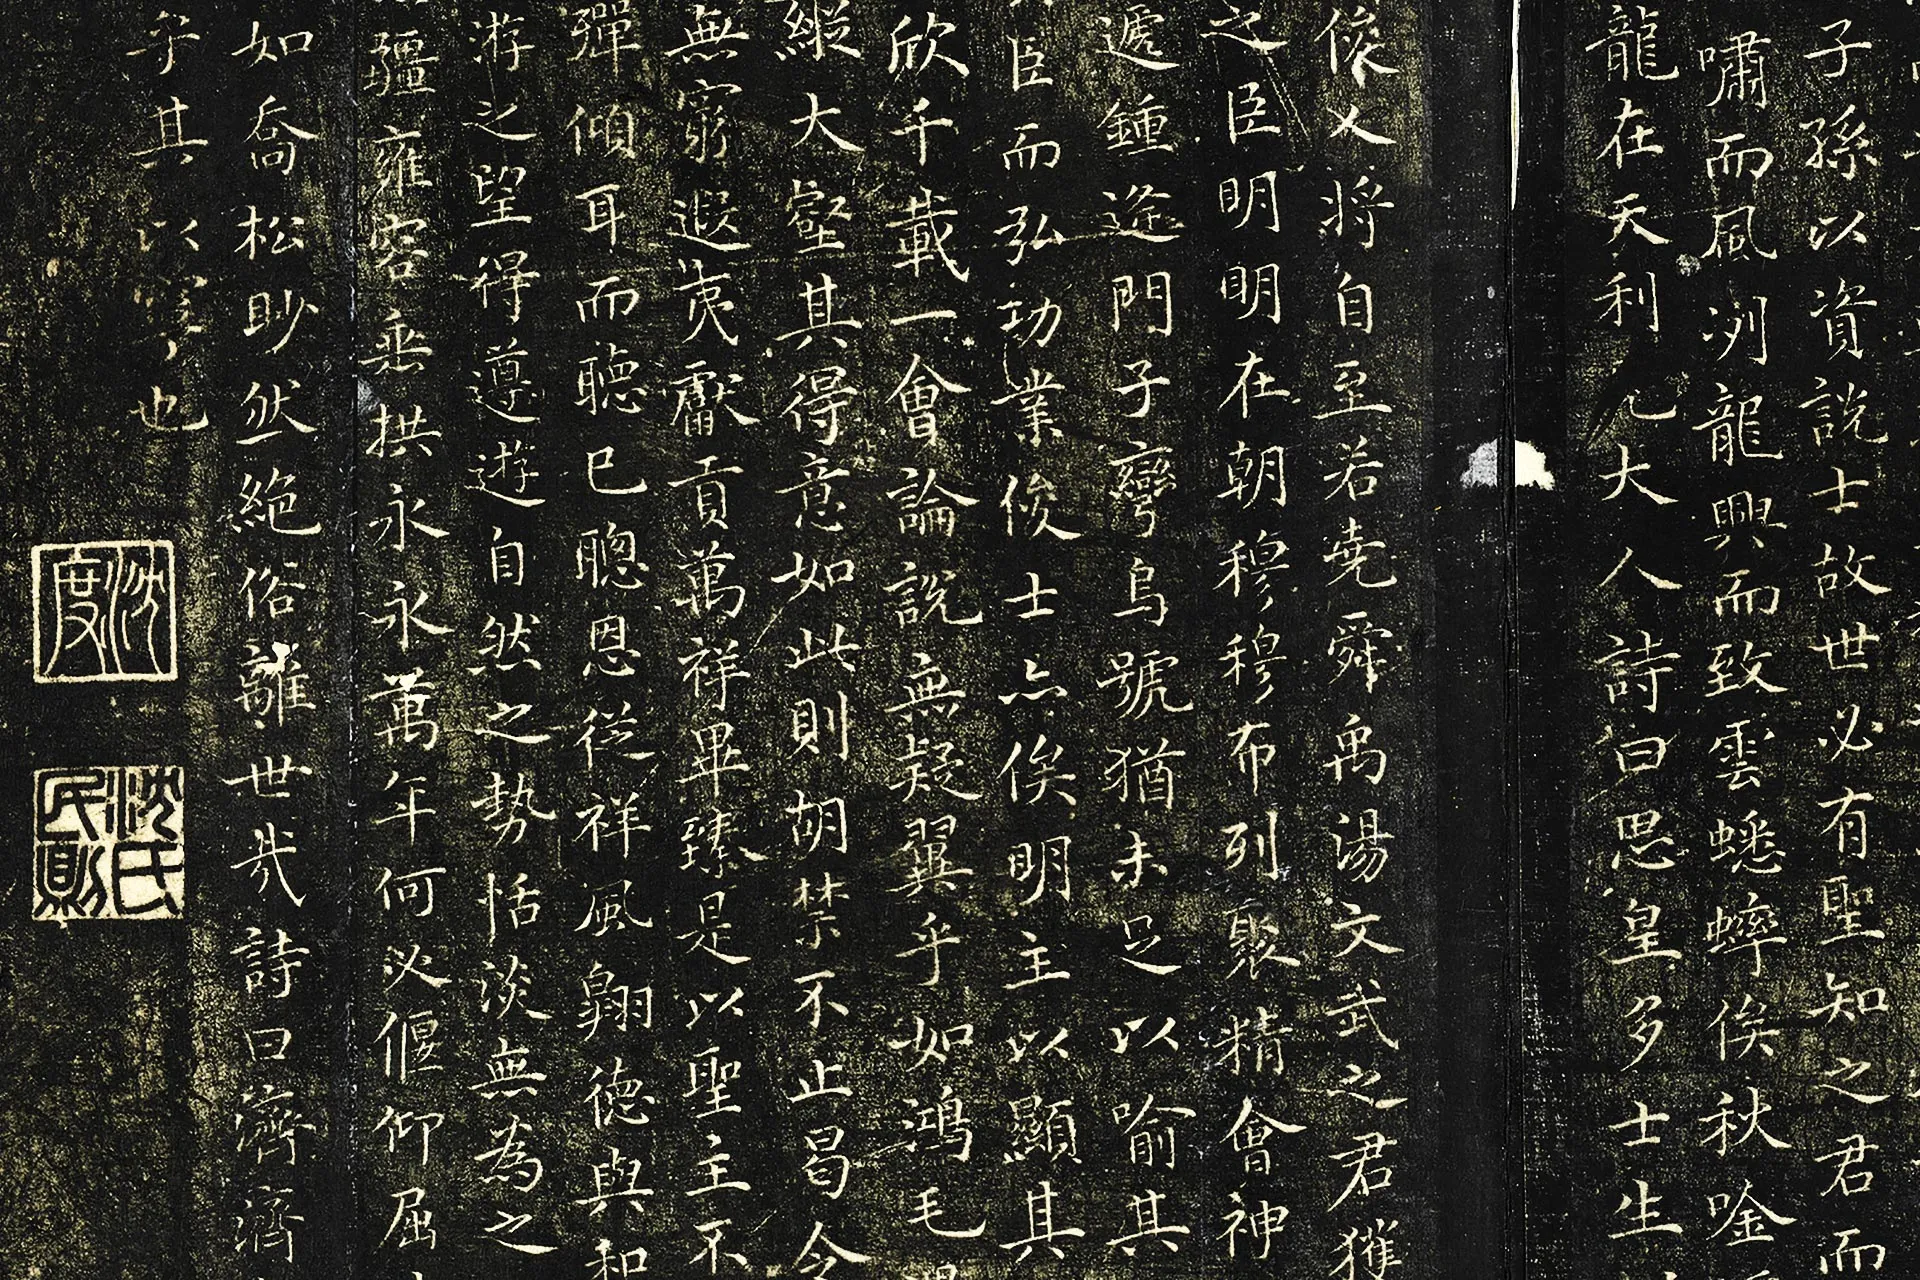 子孫以資說士故世必有聖知之君而
嘯而風冽龍興而致雲蟋蟀俟秋唫
龍在天利見大人詩曰思皇多士生
俊乂將自至若堯舜禹湯文武之君獲
之臣明明在朝穆穆布列聚精會神
遞鍾逢門子彎烏號猶未足以喻其
臣而弘功業俊士亦俟明主以顯其
欣千載一會論說無疑翼乎如鴻毛
縱大壑其得意如此則胡禁不止曷令
無窮遐夷獻貢萬祥畢臻是以聖主不
殫傾耳而聽已聰恩從祥風翱德與和
游之望得遵遊自然之勢恬淡無為之
疆雍容垂拱永永萬年何必偃仰屈
如喬松眇然絕俗離世哉詩曰濟濟
乎其以寧也
沈度
沈氏民則